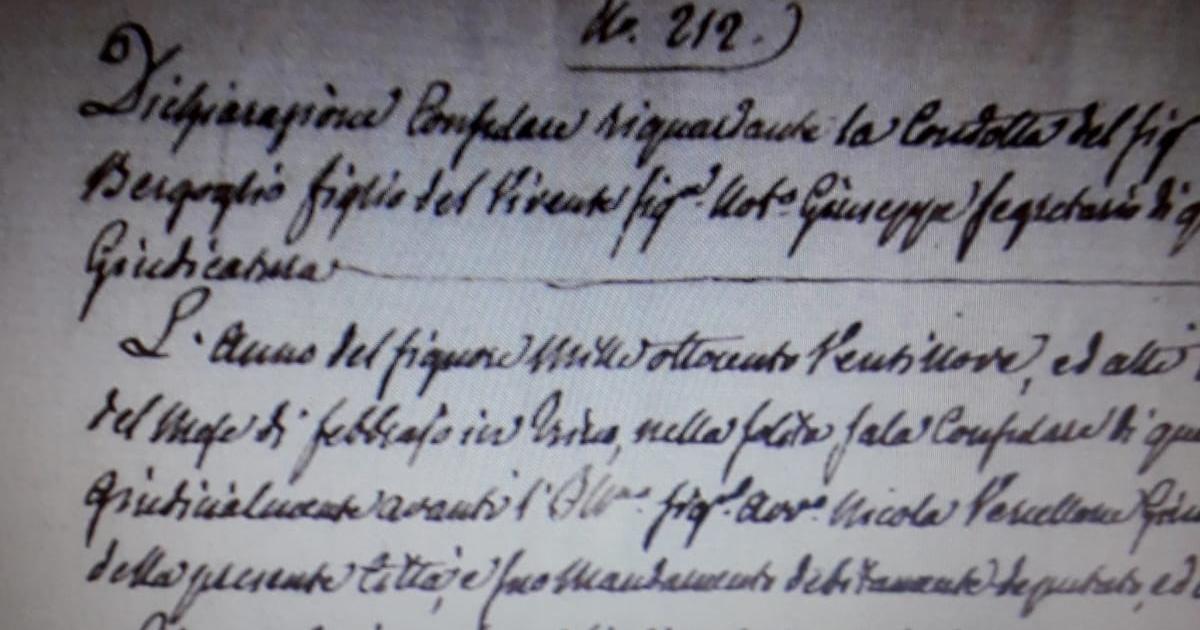 No. 212.)
Dichiarazione Consulare riguardante la Condotta del Sig
Bergoglio figlio del Vivente Sigr. Noto. Giuseppe Segretario di q
Giudicatura
L'Anno del Signore Mille ottocento Ventinove, ed alli
del Mese di febbrajo in Trino, nella solita Sala Consulare di que
Giudicialmente avanti l'Illmo. Sigr. Avvo. Nicola Vercellone Giu
della presente Città, e suo Mandamento debitamente deputato, ed